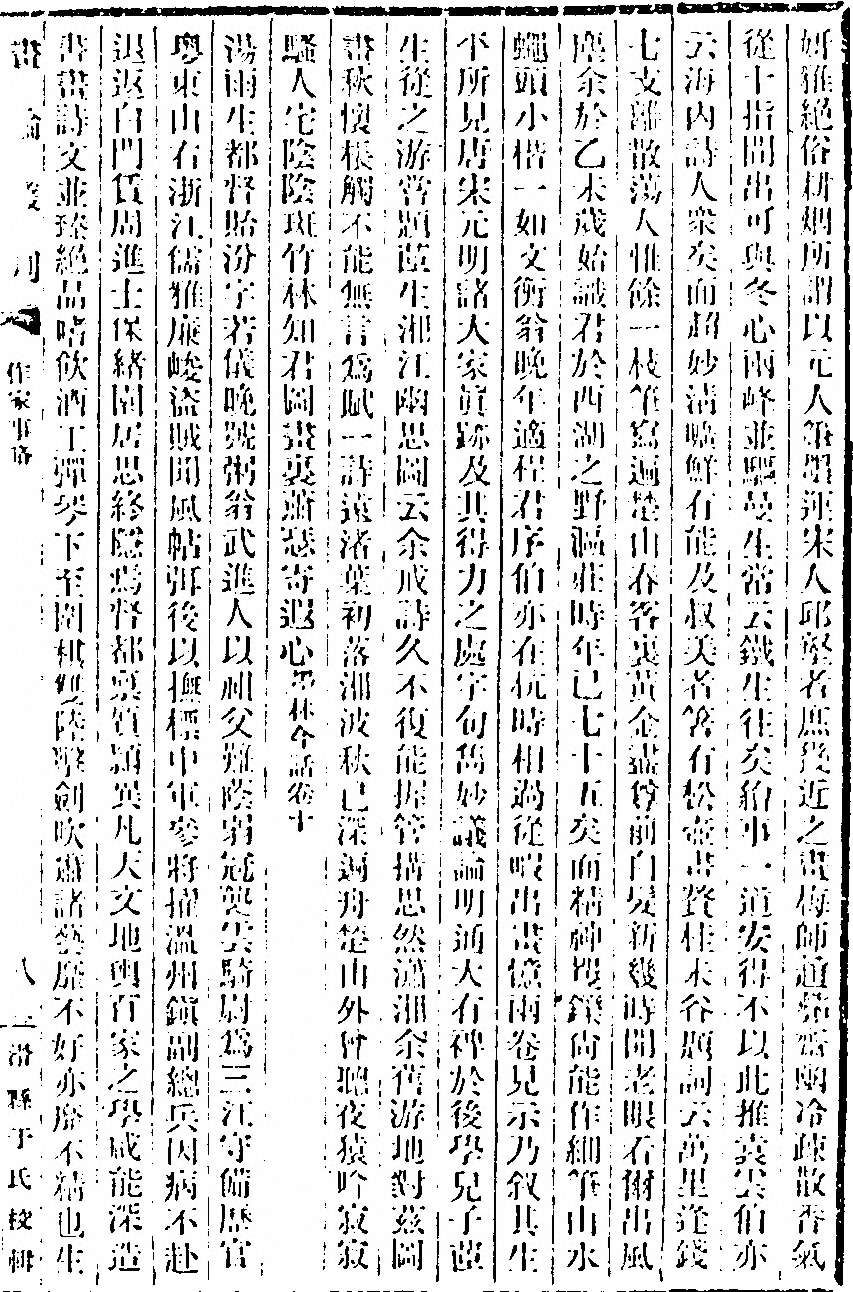 妍雅絕俗耕烟所謂以元人筆墨運宋人邱壑者庶幾近之畫梅師道茀齋幽冷疎散香氣
從十指間出可與冬心兩峰並驅曼生常云鐵生往矣給事一道安得不以此推袁雲伯亦
云海內詩人衆矣而超妙清曠鮮有能及叔美者箸有松壺畫贅桂未谷題詞云萬里逢錢
七支離散蕩人惟餘一枝筆寫遍楚山春客裏黃金盡尊前白髮新幾時開老眼看爾出風
塵余於乙未歲始識君於西湖之野漚莊時年已七十五矣而精神矍鑠尙能作細筆山水
蠅頭小楷一如文衡翁晚年適程君序伯亦在杭時相過從暇出畫憶兩卷見示乃叙其生
平所見唐宋元明諸大家眞跡及其得力之處字句雋妙議論明通大有裨於後學兒子茝
生從之游嘗題茝生湘江幽思圖云余戒詩久不復能握管搆思然瀟湘余舊游地對茲圖
畫秋懷棖觸不能無言爲賦一詩遠渚葉初落湘波秋已深遍舟楚山外曾聽夜猿吟寂寂
騷人宅陰陰斑竹林知君圖畫裏蕭瑟寄遐心墨林今話卷十
湯雨生都督貽汾字若儀晚號粥翁武進人以祖父難蔭弱冠襲雲騎尉爲三江守備歷官
粵東山右浙江儒雅廉峻盜賊聞風帖弭後以撫標中軍參將擢溫州鎭副總兵因病不赴
退返白門賃周進士保緒園居思終隱焉督都稟質穎異凡天文地輿百家之學咸能深造
書畫詩文並臻絕品嗜飲酒工彈琴下至圍棋雙陸擊劍吹簫諸藝靡不好亦靡不精也生
畫論叢刊 作家事略 八 一 滑縣于氏校輯